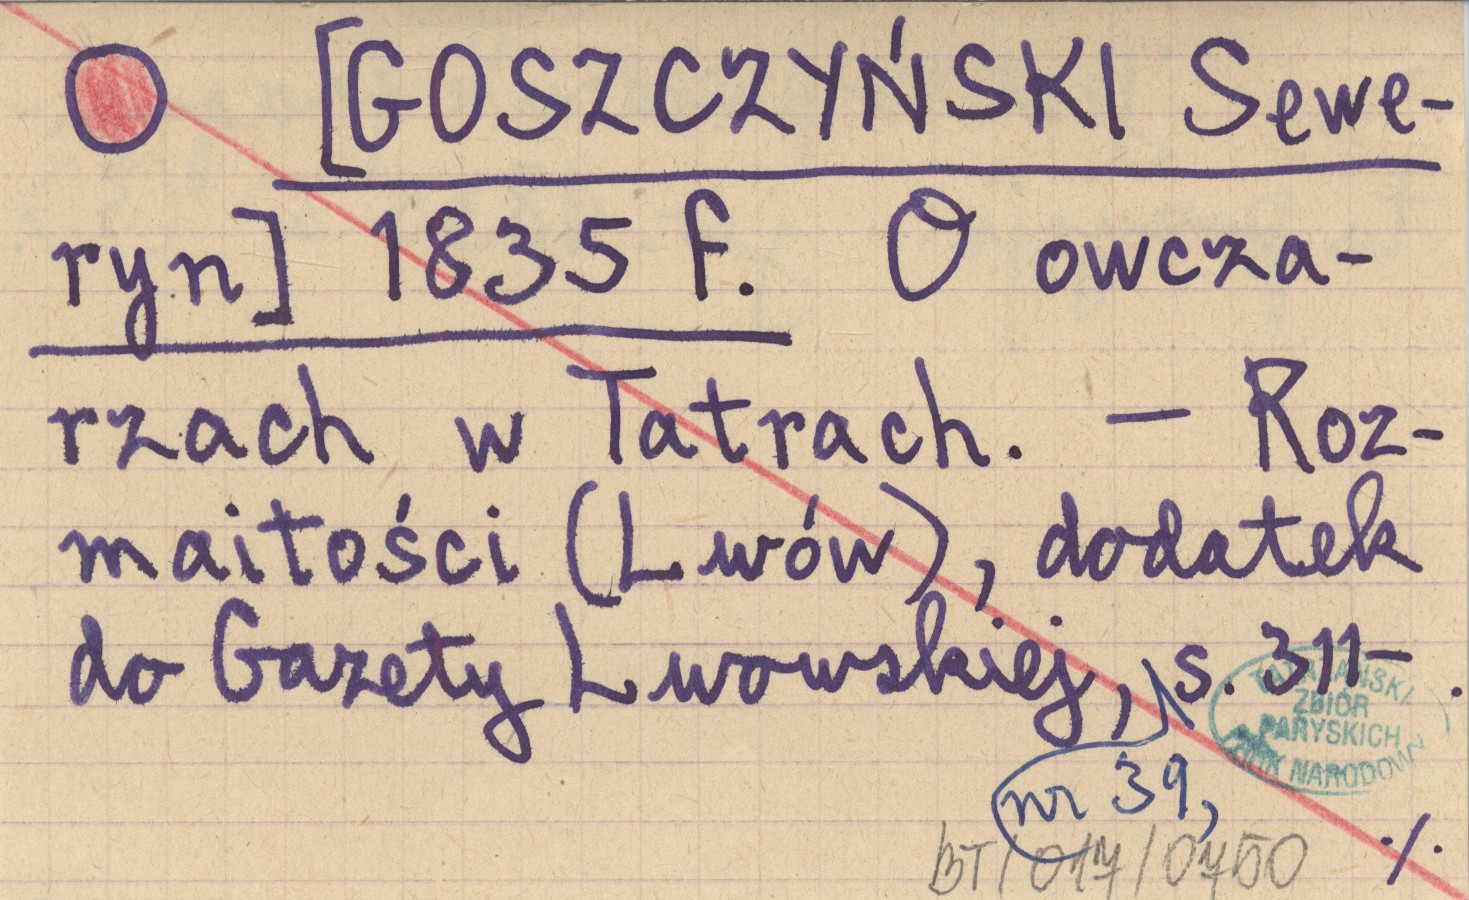 [GOSZCZYŃSKI Sewe-
ryn] 1835 f. O owcza-
rzach w Tatrach. — Roz-
maitości (Lwów), dodatek
do Gazety Lwowskiej, s. 311-
nr 39,
TATRZAŃSKI
ZBIÓR
PARYSKICH
NARODOWY
BT/017/0750
./.